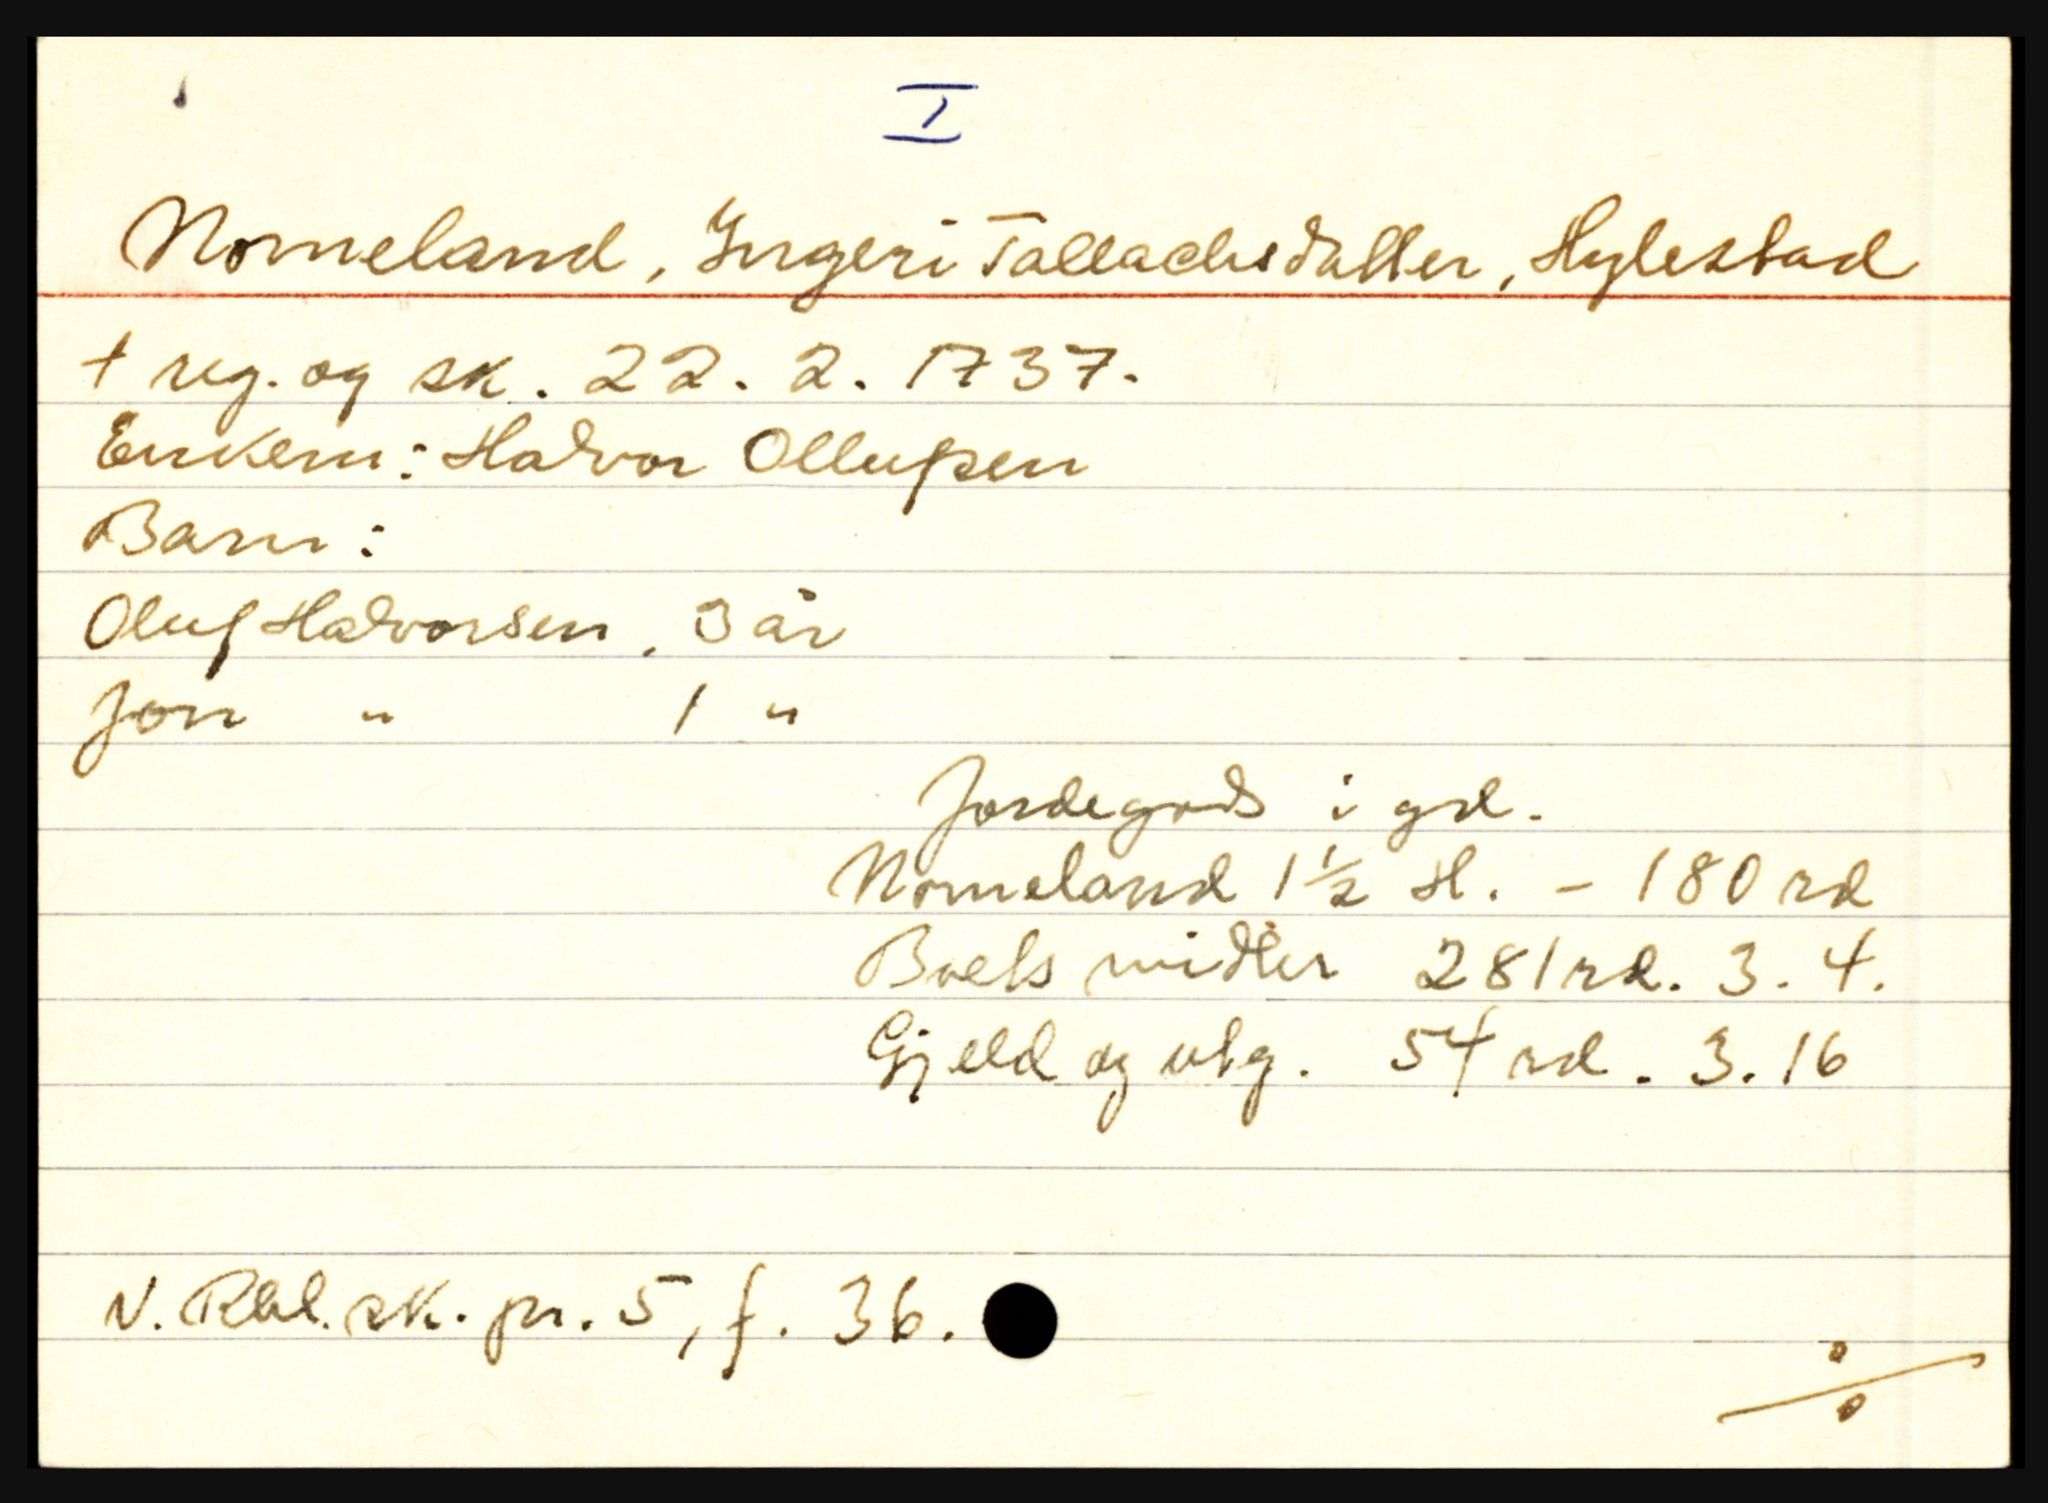 I
Nomeland, Ingeri Tallachsdatter, Hylestad
† reg. og sk. 22. 2. 1737.
Enkem: Halvor Ollufsen
Barn:
Oluf Halvorsen, 3 år
Jon " 1 "
Jordegods i grd.
Nomeland 1½ H. - 180 rd
Boets midler 281 rd. 3. 4.
Gjeld og utg. 54 rd. 3. 16
N. Rbl. sk. pr. 5, f. 36.